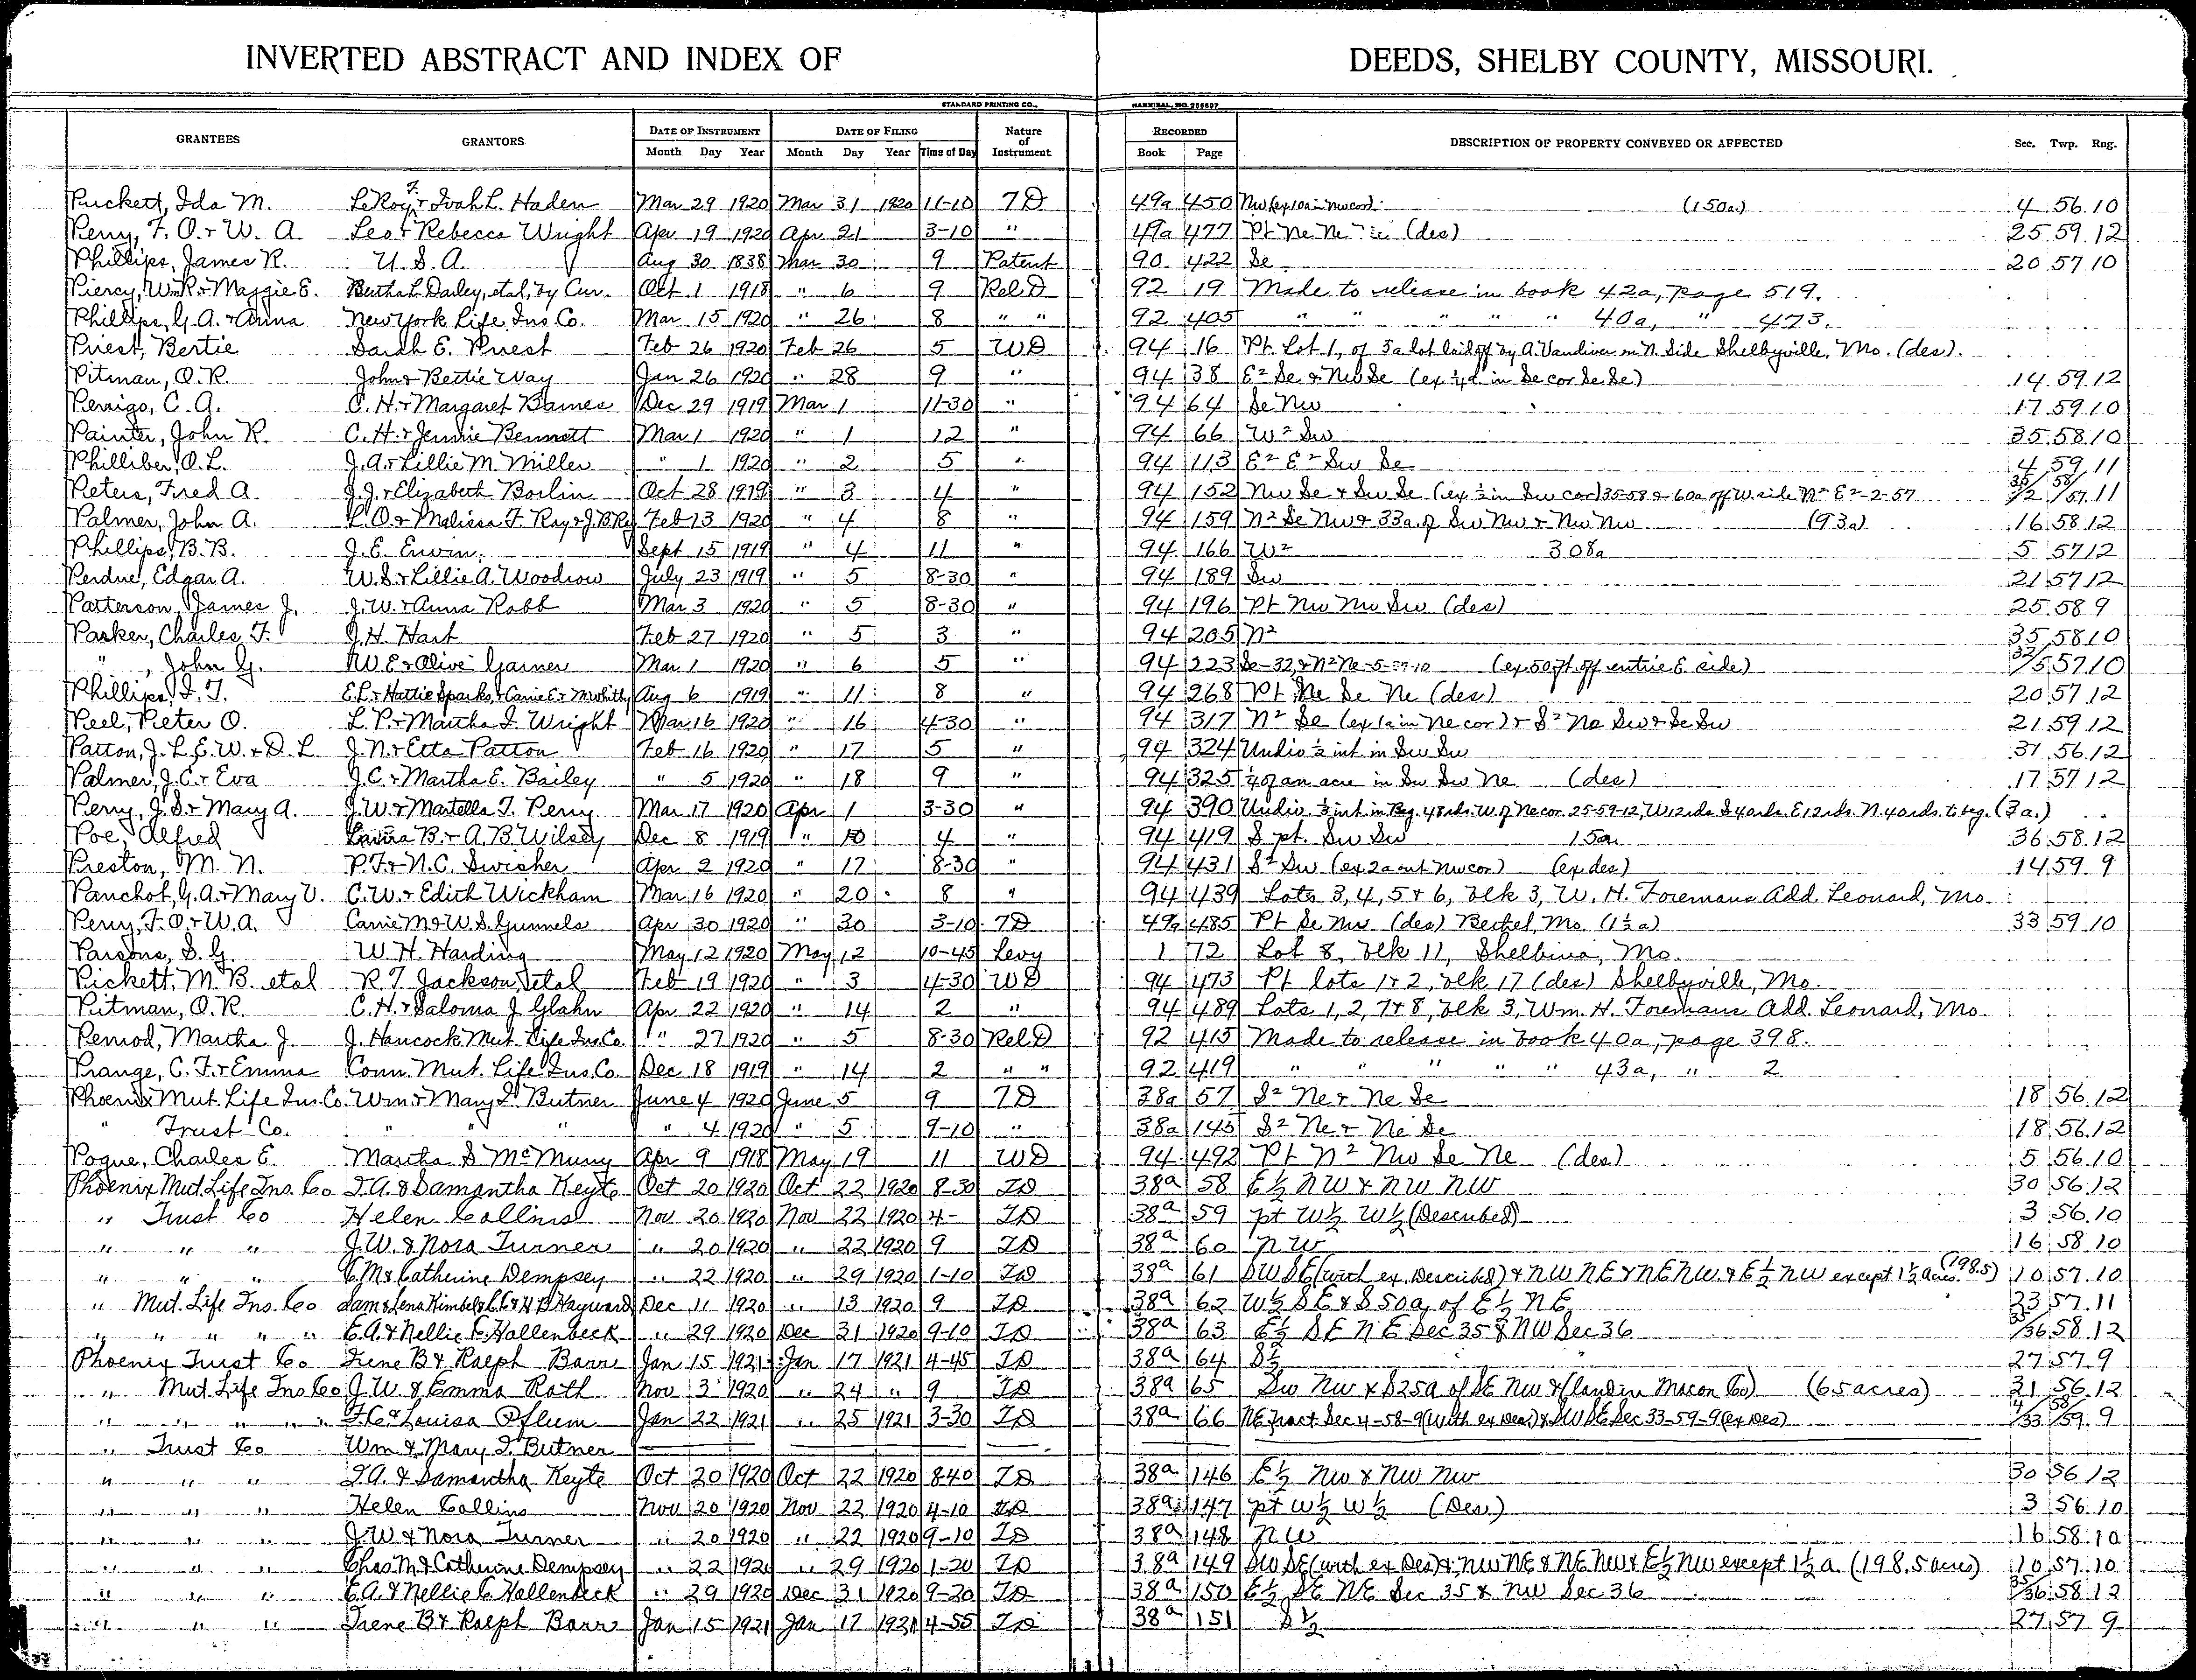 INVERTED ABSTRACT AND INDEX OF DEEDS, SHELBY COUNTY, MISSOURI.
STANDARD PRINTING CO., HANNIBAL, MO. 256697
GRANTEES GRANTORS DATE OF INSTRUMENT DATE OF FILING Nature of Instrument RECORDED DESCRIPTION OF PROPERTY CONVEYED OR AFFECTED Sec. Twp. Rng.
Month Day Year Month Day Year Time of Day Book Page
Puckett, Ida M. LeRoy F. & Ivah L. Haden Mar 29 1920 Mar 31 1920 11-10 TD 49a 450 Nw (ex 10a in nw cor) (150a) 4 56 10
Perry, F. O. & W. A. Leo & Rebecca Wright Apr 19 1920 Apr 21 3-10 " 49a 477 Pt Ne Ne (des) 25 59 12
Phillips, James R. U. S. A. Aug 30 1838 Mar 30 9 Patent 90 422 Se 20 57 10
Piercy, Wm R. & Maggie E. Bertha L. Dailey, etal, by Cur. Oct 1 1918 " 6 9 Rel D 92 19 Made to release in book 42a, page 519.
Phillips, G. A. & Anna New York Life Ins. Co. Mar 15 1920 " 26 8 " " 92 405 " " " " " 40a, " 473.
Priest, Bertie Sarah E. Priest Feb 26 1920 Feb 26 5 WD 94 16 Pt Lot 1, of 5a lot laid off by A. Vandiver on N. Side Shelbyville, Mo. (des).
Pitman, O. R. John & Bettie Way Jan 26 1920 " 28 9 " 94 38 E2 Se & Nw Se (ex in Se cor Se Se) 14 59 12
Perrigo, C. A. C. H. & Margaret Barnes Dec 29 1919 Mar 1 11-30 " 94 64 Se Nw 17 59 10
Painter, John R. C. H. & Jennie Bennett Mar 1 1920 " 1 12 " 94 66 W2 Sw 35 58 10
Philliber, O. L. J. A. & Lillie M Miller " 1 1920 " 2 5 " 94 113 E2 E2 Sw Se 4 59 11
Peters, Fred A. J. J. & Elizabeth Boslin Oct 28 1919 " 3 4 " 94 152 Nw Se & Sw Se (ex ½ in Sw cor) 35-58 & 60a off W side N2 E2-2-57 35/2 58/57 11
Palmer, John A. L. O. & Malissa F. Ray & J. B. Ray Feb 13 1920 " 4 8 " 94 159 N2 Se Nw & 33a of Sw Nw & Nw Nw (93a) 16 58 12
Phillips, B. B. J. E. Erwin Sept 15 1919 " 4 11 " 94 166 W2 308a 5 57 12
Perdue, Edgar A. W. S. & Lillie A. Woodrow July 23 1919 " 5 8-30 " 94 189 Sw 21 57 12
Patterson, James J. J. W. & Anna Robb Mar 3 1920 " 5 8-30 " 94 196 Pt Nw Nw Sw (des) 25 58 9
Parker, Charles F. J. H. Hart Feb 27 1920 " 5 3 " 94 205 N2 35 58 10
" , John G. W. E. & Olive Garner Mar 1 1920 " 6 5 " 94 223 Se-32, & N2 Ne-5-57-10 (ex 50 ft. off entire E. side) 32/5 57 10
Phillips, I. T. E. L. & Hattie Sparks, & Carrie E. & M Whitby Aug 6 1919 " 11 8 " 94 268 Pt Ne Se Ne (des) 20 57 12
Peel, Pieter O. L. P. & Martha I. Wright Mar 16 1920 " 16 4-30 " 94 317 N2 Se (ex 1a in Ne cor) & S2 Ne Sw & Se Sw 21 59 12
Patton, J. L. E. W. & D. L. J. N. & Etta Patton Feb 16 1920 " 17 5 " 94 324 Undiv ½ int in Sw Sw 31 56 12
Palmer, J. C. & Eva J. C. & Martha E. Bailey " 5 1920 " 18 9 " 94 325 ¼ of an acre in Sw Sw Ne (des) 17 57 12
Perry, J. S. & Mary A. J. W. & Martella T. Perry Mar 17 1920 Apr 1 3-30 " 94 390 Undiv. ⅓ int. in Beg. 48 rds. W. of Ne cor. 25-59-12, W 12 rds. S 40 rds. E. 12 rds. N. 40 rds. to beg. (3a.)
Poe, Alfred Laura B. & A. B Wilsey Dec 8 1919 " 10 4 " 94 419 S pt. Sw Sw 15a 36 58 12
Preston, M. N. P. F. & N. C. Swisher Apr 2 1920 " 17 8-30 " 94 431 S2 Sw (ex 2a out Nw cor) (ex des) 14 59 9
Panchot, G. A. & Mary V. C. W. & Edith Wickham Mar 16 1920 " 20 8 " 94 439 Lots 3, 4, 5 & 6, blk 3, W. H. Foremans Add. Leonard, Mo.
Perry, F. O. & W. A. Carrie M. & W. S. Gunnels Apr 30 1920 " 30 3-10 TD 49a 485 Pt Se Nw (des) Bethel, Mo. (1½a) 33 59 10
Parsons, S. G. W. H. Harding May 12 1920 May 12 10-45 Levy 1 72 Lot 8, blk 11, Shelbina, Mo.
Pickett, M. B. etal R. T. Jackson, etal Feb 19 1920 " 3 4-30 WD 94 473 Pt lots 1 & 2, blk 17 (des) Shelbyville, Mo.
Pitman, O. R. C. H. & Saloma J Glahn Apr 22 1920 " 14 2 " 94 489 Lots 1, 2, 7 & 8, blk 3, Wm. H. Foremans Add. Leonard, Mo.
Penrod, Martha J. J. Hancock Mut. Life Ins. Co. " 27 1920 " 5 8-30 Rel D 92 415 Made to release in book 40a, page 398.
Prange, C. F. & Emma Conn. Mut. Life Ins. Co. Dec 18 1919 " 14 2 " " 92 419 " " " " " 43a, " 2
Phoenix Mut. Life Ins. Co. Wm. & Mary I. Butner June 4 1920 June 5 9 TD 38a 57 S2 Ne & Ne Se 18 56 12
" Trust Co. " " " " 4 1920 " 5 9-10 " 38a 145 S2 Ne & Ne Se 18 56 12
Pogue, Charles E. Martha S McMurry Apr 9 1918 May 19 11 WD 94 492 Pt N2 Nw Se Ne (des) 5 56 10
Phoenix Mut. Life Ins. Co T. A. & Samantha Keyte Oct 20 1920 Oct 22 1920 8-30 TD 38a 58 E½ NW & NW NW 30 56 12
" Trust Co Helen Collins Nov 20 1920 Nov 22 1920 4- TD 38a 59 pt W½ W½ (Described) 3 56 10
" " " J. W. & Nora Turner " 20 1920 " 22 1920 9 TD 38a 60 NW 16 58 10
" " " C. M. & Catherine Dempsey " 22 1920 " 29 1920 1-10 TD 38a 61 SW SE (with ex. Described) & NW NE & NE NW & E½ NW except 1½ acres (198.5) 10 57 10
" Mut. Life Ins. Co Sam & Lena Kimbel & C. C. & H. B Hayward Dec 11 1920 " 13 1920 9 TD 38a 62 W½ SE & S 50a of E½ NE 23 57 11
" " " " " E. A. & Nellie C. Hollenbeck " 29 1920 Dec 31 1920 9-10 TD 38a 63 E½ SE NE Sec 35 & NW Sec 36 35/36 58 12
Phoenix Trust Co Irene B & Ralph Barr Jan 15 1921 Jan 17 1921 4-45 TD 38a 64 S½ 27 57 9
" Mut Life Ins Co J. W. & Emma Rath Nov 3 1920 " 24 " 9 TD 38a 65 Sw NW & S25a of SE NW & (land in Macon Co) (65 acres) 31 56 12
" " " " " F. C. & Louisa Pflum Jan 22 1921 " 25 1921 3-30 TD 38a 66 NE fract Sec 4-58-9 (with ex Des) & SW SE Sec 33-59-9 (ex Des) 4/33 58/59 9
" Trust Co Wm & Mary I. Butner
" " " T. A. & Samantha Keyte Oct 20 1920 Oct 22 1920 8-40 TD 38a 146 E½ NW & NW NW 30 56 12
" " " Helen Collins Nov 20 1920 Nov 22 1920 4-10 TD 38a 147 pt W½ W½ (Des.) 3 56 10
" " " J. W & Nora Turner " 20 1920 " 22 1920 9-10 TD 38a 148 NW 16 58 10
" " " Chas M & Catherine Dempsey " 22 1920 " 29 1920 1-20 TD 38a 149 SW SE (with ex Des) & NW NE & NE NW & E½ NW except 1½ a. (198.5 acres) 10 57 10
" " " E. A. & Nellie C Hollenbeck " 29 1920 Dec 31 1920 9-20 TD 38a 150 E½ SE NE Sec 35 & NW Sec 36 35/36 58 12
" " " Irene B & Ralph Barr Jan 15 1921 Jan 17 1921 4-55 TD 38a 151 S½ 27 57 9